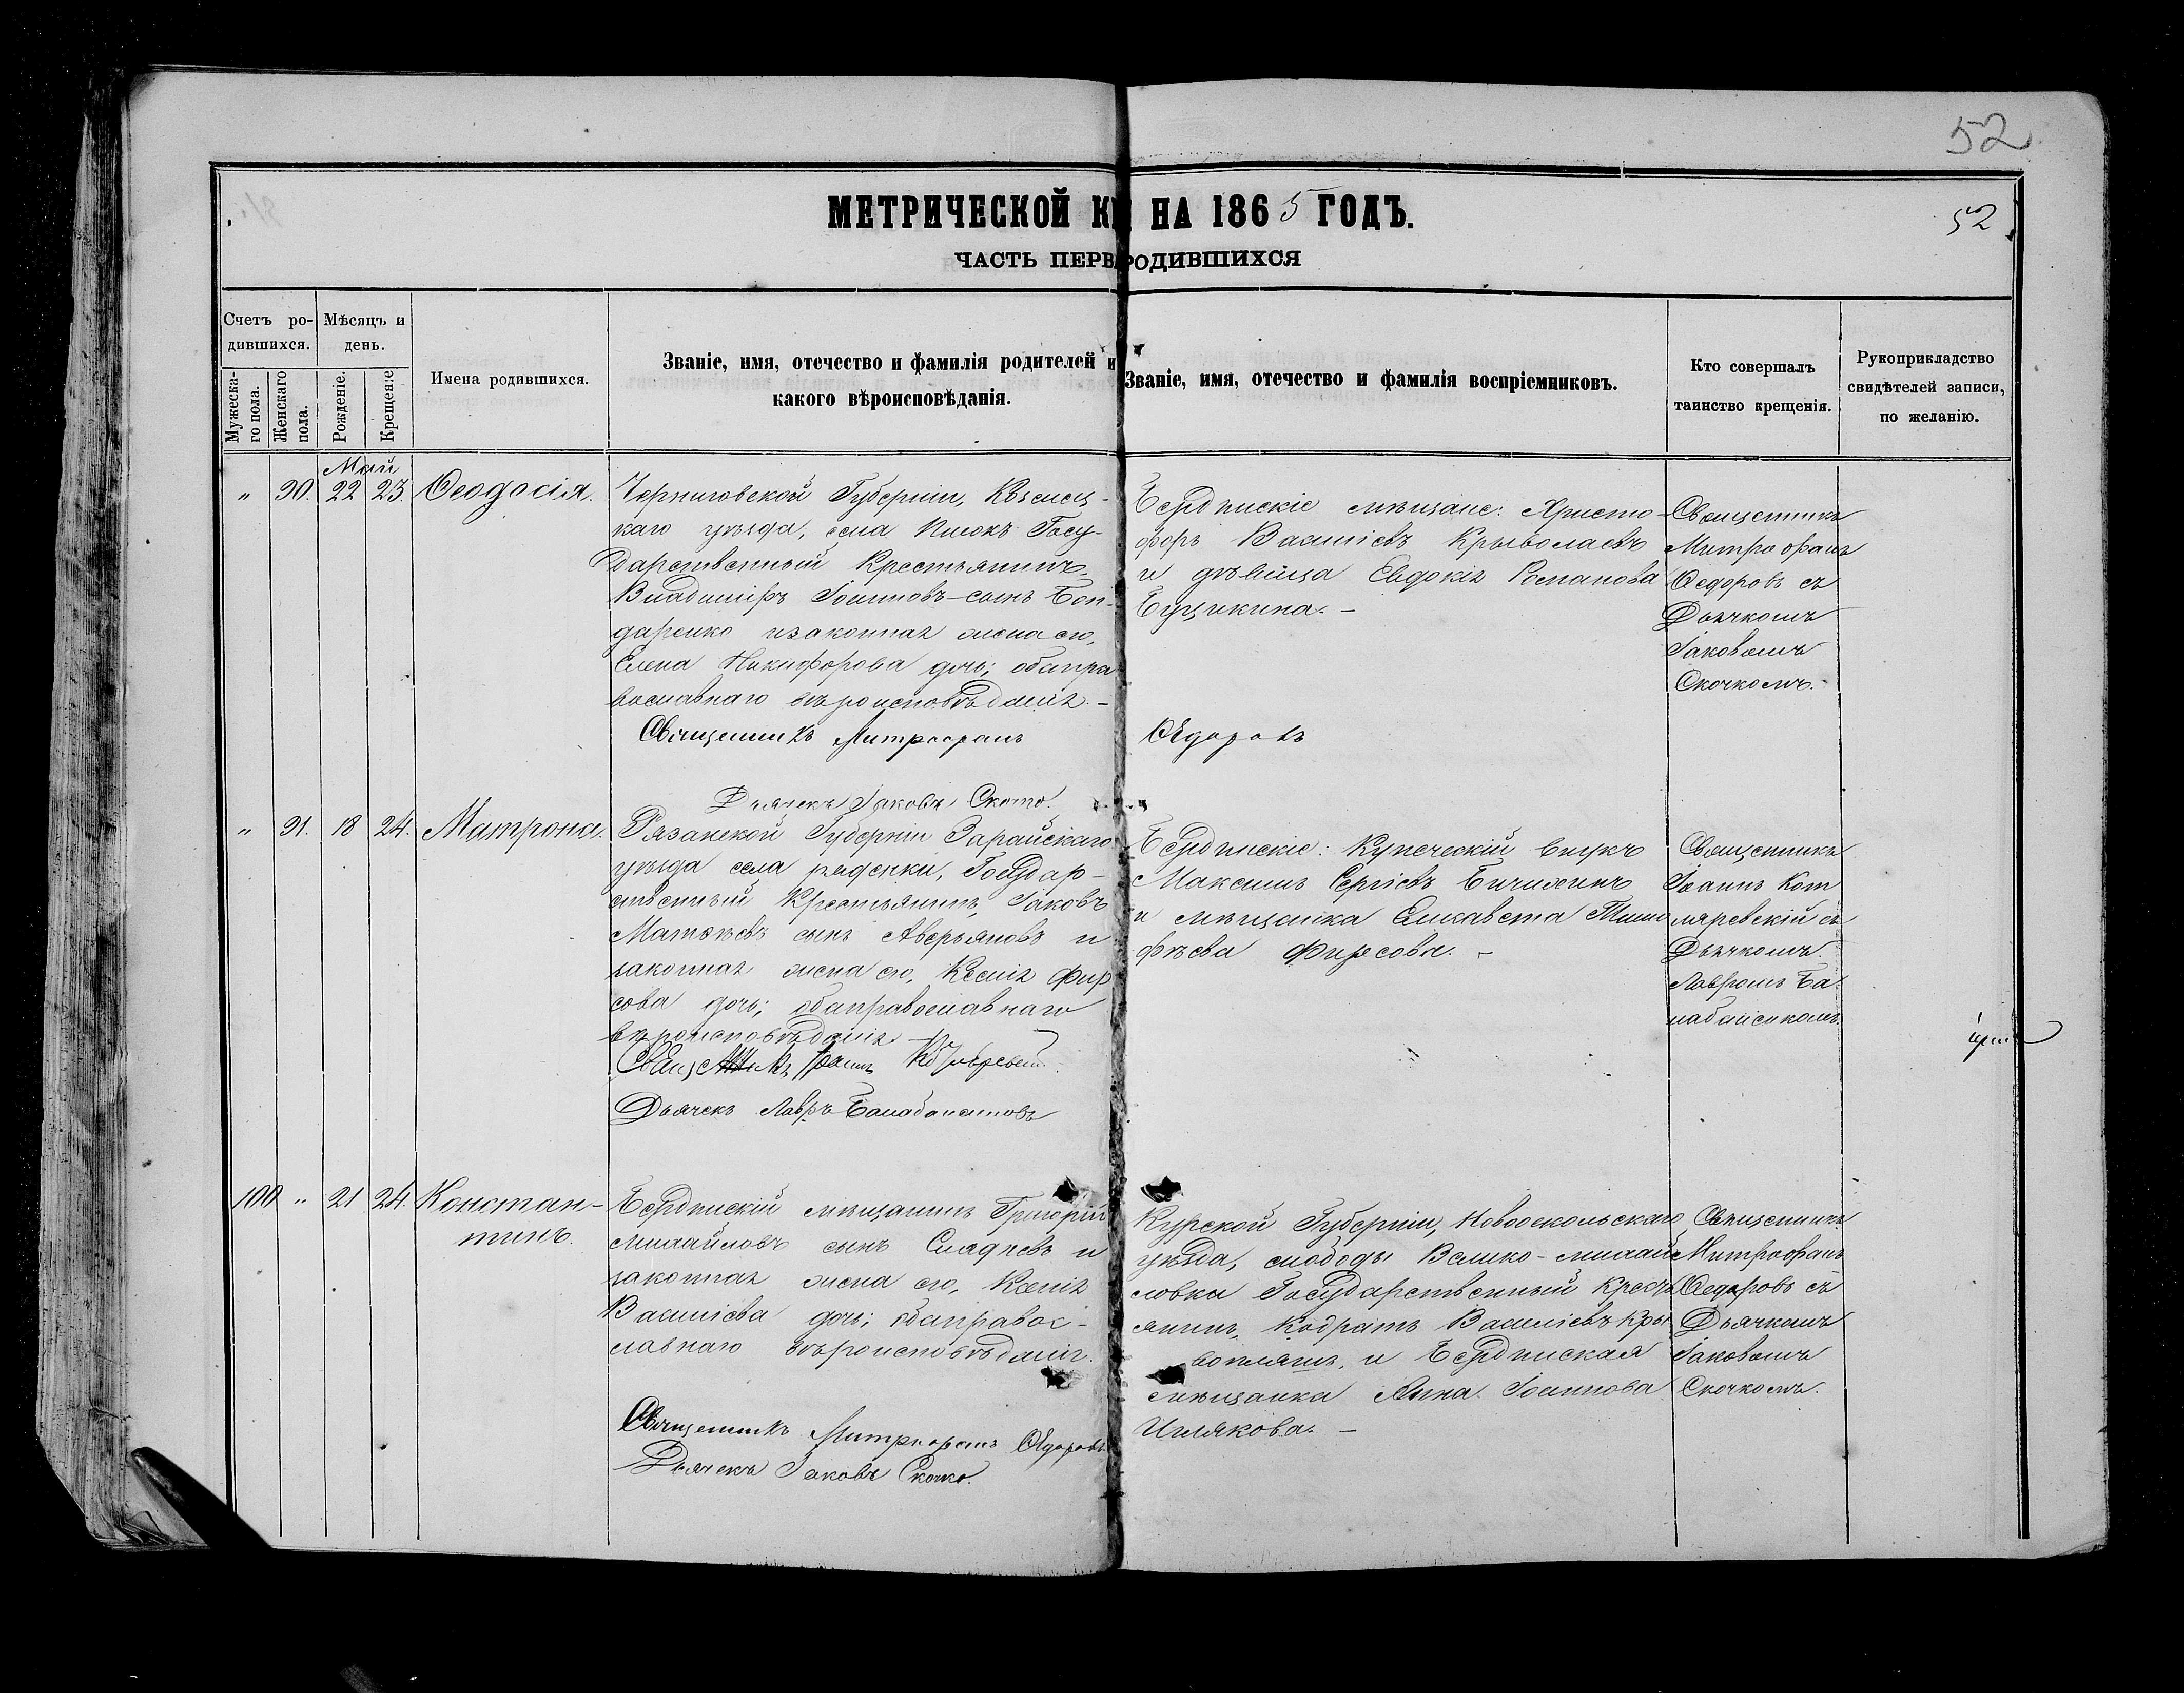 52
МЕТРИЧЕСКОЙ К НА 1865 ГОДЪ.
52
ЧАСТЬ ПЕРВ РОДИВШИХСЯ
Счетъ ро-
дившихся.
Мѣсяцъ и
день.
Мужеска-
го пола.
Женскаго
пола.
Рожденіе.
Крещеніе
Имена родившихся.
Званіе, имя, отечество и фамилія родителей и
какого вѣроисповѣданія.
Званіе, имя, отечество и фамилія воспріемниковъ.
Кто совершалъ
таинство крещенія.
Рукоприкладство
свидѣтелей записи,
по желанію.
Май
" 90. 22 23. Ѳеодосія.
Черниговской Губерніи,
каго уѣзда, села Госу-
дарственный Крестьянинъ
Владиміръ Іоанновъ сынъ Бон-
даренко и законная жена его,
Елена Никифорова дочь; оба пра
вославнаго вѣроисповѣданія. –
Священникъ Митрофанъ Ѳедоровъ
Дьячекъ Іаковъ Скочко.
Бердянскіе мѣщане: Христо-
форъ Василіевъ
и дѣвица Евдокія Романова
–
Священникъ
Митрофанъ
Ѳедоровъ съ
Дьячкомъ
Іаковомъ
Скочкомъ.
" 91. 18 24. Матрона.
Рязанской Губерніи Зарайскаго
уѣзда села Государ-
ственный Крестьянинъ, Іаковъ
Матѳѣевъ сынъ Аверьяновъ и
законная жена его, Ксенія Фир
сова дочь; оба православнаго
вѣроисповѣданія –
Священникъ Іоаннъ
Дьячекъ Лавръ
Бердянскіе: Купеческій внукъ
Максимъ Сергіевъ Бичихинъ
и мѣщанка Елисавета Тимо
фѣева Фирсова. –
Священникъ
Іоаннъ Кот
ляревскій съ
Дьячкомъ
Лавромъ Ба
100 " 21 24. Констан-
тинъ.
Бердянскій мѣщанинъ Григорій
Михайловъ сынъ и
законная жена его, Ксенія
Василіева дочь; оба правос-
лавнаго вѣроисповѣданія.
Священникъ Митрофанъ Ѳедоровъ
Дьячекъ Іаковъ Скочко.
Курской Губерніи, Новооскольскаго
уѣзда, слободы Велико-михай
ловки Государственный Кресть
янинъ, Кодратъ Василіевъ Кри
и Бердянская
мѣщанка Анна Іоаннова
–
Священникъ
Митрофанъ
Ѳедоровъ съ
Дьячкомъ
Іаковомъ
Скочкомъ.